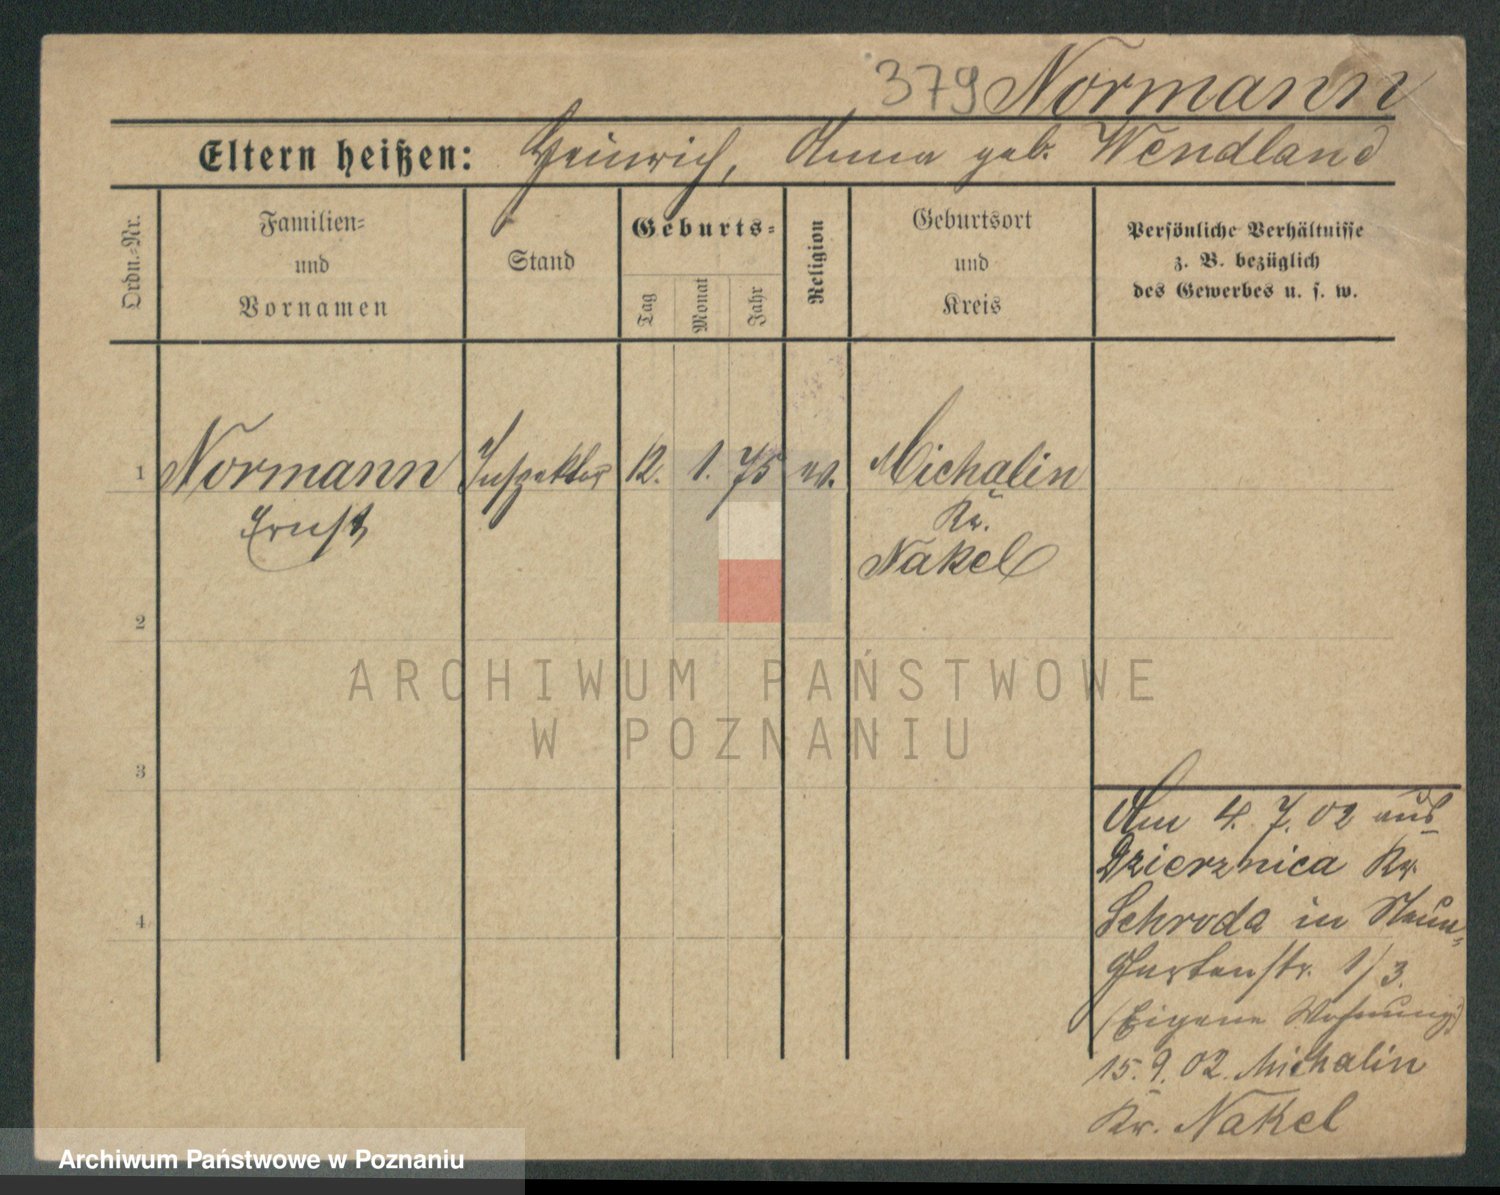 379 Normann
Eltern heißen: Heinrich, Anna geb. Wendland
Ordn.-Nr.
Familien-
und
Vornamen
Stand
Geburts-
Tag
Monat
Jahr
Religion
Geburtsort
und
Kreis
Persönliche Verhältnisse
z. B. bezüglich
des Gewerbes u. s. w.
1 Normann Inspektor 12. 1. 75 ev. Michalin
Ernst Kr.
Nakel
2
3
4
Am 4. 7. 02 aus
Dzierznica Kr.
Schroda in
Gartenstr. 1/3.
(Eigene Wohnung)
15. 9. 02. Michalin
Kr. Nakel
ARCHIWUM PAŃSTWOWE
W POZNANIU
Archiwum Państwowe w Poznaniu